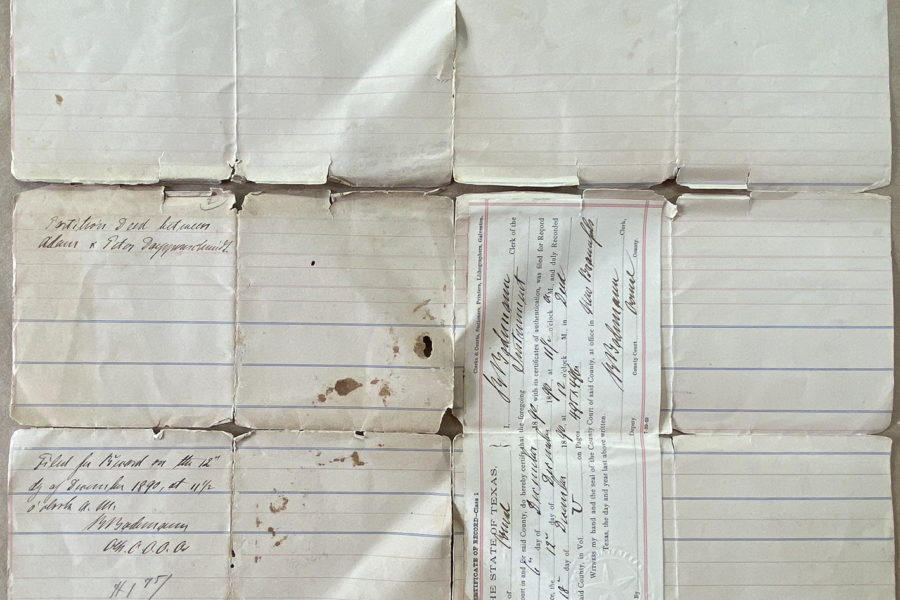 Partition Deed between
Adam & Peter
Filed for Record on the 12"
dy of December 1890, at 11 1/2
o'clock A. M.
R Bodemann
CERTIFICATE OF RECORD—Class 1
Clarke & Courts, Stationers, Printers, Lithographers, Galveston.
THE STATE OF TEXAS, }
of Comal } I, R Bodemann Clerk of the
Court in and for said County, do hereby certify that the foregoing Instrument
6" day of December 1890 with its certificates of authentication, was filed for Record
the 12" day of December 1890 at 11 1/2 o'clock A M., and duly Recorded
day of December 1890 at 12 o'clock M., in Deed
said County, in Vol. V on Pages
Witness my hand and the seal of the County Court of said County, at office in New Braunfels
Texas, the day and year last above written.
R Bodemann Clerk,
County Court, Comal County.
By Deputy